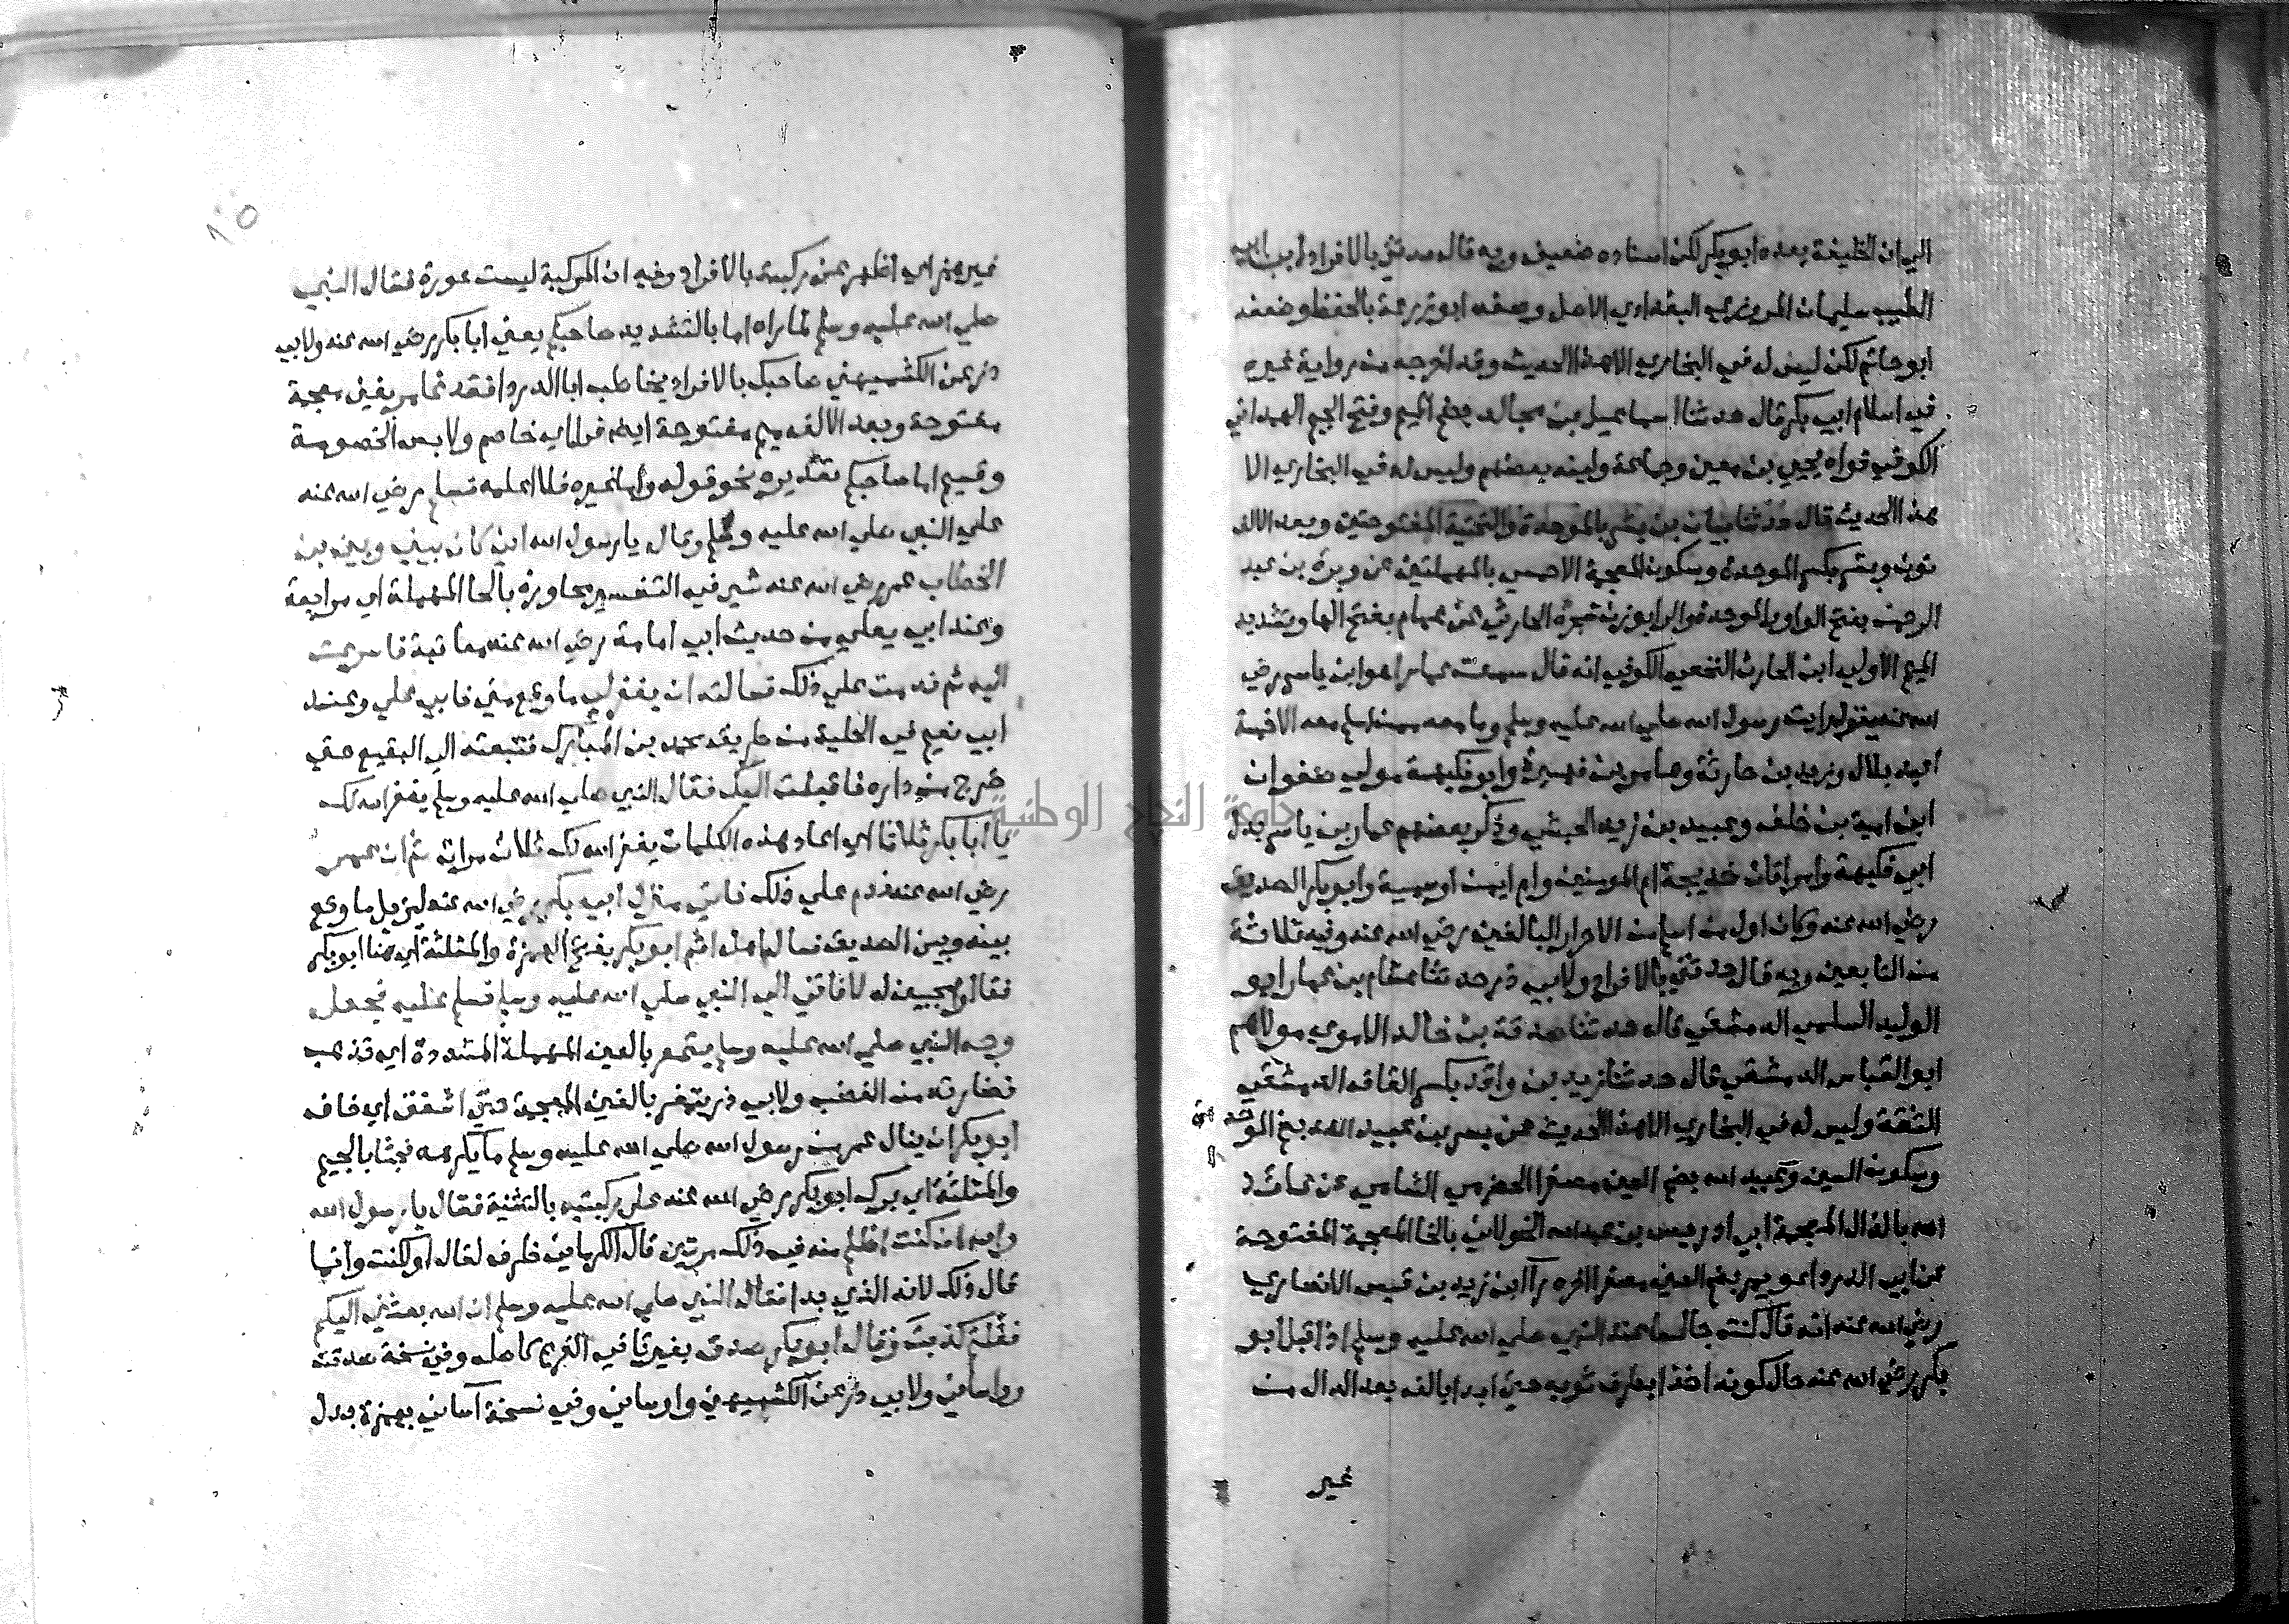 الي ان الخليفة بعده ابو بكر لكن اسناده ضعيف وبه قال حدثني بالافراد احمد بن ابي
الطيب سليمان المروزي البغدادي الاصل وصفه ابو زرعة بالحفظ وضعفه
ابو حاتم لكن ليس له في البخاري الا هذا الحديث وقد اخرجه من رواية غيره
في اسلام ابي بكر قال حدثنا اسماعيل بن مجالد بضم الميم وفتح الجيم الهمداني
الكوفي قواه يحيي بن معين وجماعة ولينه بعضهم وليس له في البخاري الا
هذا الحديث قال حدثنا بيان بن بشر بالموحدة والتحتية المفتوحتين وبعد الالف
نون وبشر بكسر الموحدة وسكون المعجمة الاحمسي بالمهملتين عن وبرة بن عبد
الرحمن بفتح الواو والموحدة الحارثي عن همام بفتح الها وتشديد
الميم الاولي ابن الحارث النخعي الكوفي انه قال سمعت عمارا هو ابن ياسر رضي
الله عنه يقول رايت رسول الله صلي الله عليه وسلم وما معه ممن اسلم معه الا خمسة
اعبد بلال وزيد بن حارثة وعامر بن فهيرة وابو فكيهة مولي صفوان
ابن امية بن خلف وعبيد بن زيد الحبشي وذكر بعضهم عمار بن ياسر بدل
ابي فكيهة وامراتان خديجة ام المومنين وام ايمن او سمية وابو بكر الصديق
رضي الله عنه وكان اول من اسلم من الاحرار البالغين رضي الله عنه وفيه ثلاثة
من التابعين وبه قال حدثني بالافراد ولابي ذر حدثنا هشام بن عمار ابو
الوليد السلمي الدمشقي قال حدثنا صدقة بن خالد الاموي مولاهم
ابو العباس الدمشقي قال حدثنا زيد بن واقد بكسر القاف الدمشقي
الثقة وليس له في البخاري الا هذا الحديث عن بسر بن عبيد الله بضم الموحدة
وسكون السين وعبيد الله بضم العين مصغرا الحضرمي الشامي عن عائذ
الله بالذال المعجمة ابي ادريس بن عبد الله الخولاني بالخا المعجمة المفتوحة
عن ابي الدردا عويمر بضم العين مصغرا اخره را ابن زيد بن قيس الانصاري
رضي الله عنه انه قال كنت جالسا عند النبي صلي الله عليه وسلم اذ اقبل ابو
بكر رضي الله عنه حال كونه اخذا بطرف ثوبه حتي ابدا بالف بعد الدال من
غير
١٥
غير همز اي اظهر عن ركبته بالافراد وفيه ان الركبة ليست عورة فقال النبي
صلي الله عليه وسلم لما راه اما بالتشديد صاحبكم يعني ابا بكر رضي الله عنه ولابي
ذر عن الكشميهني صاحبك بالافراد يخاطب ابا الدردا فقد غامر بغين معجمة
مفتوحة وبعد الالف ميم مفتوحة ايضا فرا اي خاصم ولابس الخصومة
وقسيم اما صاحبكم تقديره نحو قوله واما غيره فلا اعلمه فسلم رضي الله عنه
علي النبي صلي الله عليه وسلم وقال يا رسول الله اني كان بيني وبين بن
الخطاب عمر رضي الله عنه شي في التفسير محاورة بالحا المهملة اي مراجعة
وعند ابي يعلي من حديث ابي امامة رضي الله عنه معاتبة فاسرعت
اليه ثم ندمت علي ذلك فسالته ان يغفر لي ما وقع مني فابي علي وعند
ابي نعيم في الحلية من طريق محمد بن المبارك فتبعته الي البقيع حتي
خرج من داره فاقبلت اليك فقال النبي صلي الله عليه وسلم يغفر الله لك
يا ابا بكر ثلاثا اي اعاد هذه الكلمات يغفر الله لك ثلاث مرات ثم ان عمر
رضي الله عنه ندم علي ذلك فاتي منزل ابي بكر رضي الله عنه ليزيل ما وقع
بينه وبين الصديق فسال اهله اثم ابو بكر بفتح الهمزة والمثلثة اي هنا ابو بكر
فقالوا مجيبين له لا فاتي الي النبي صلي الله عليه وسلم فسلم عليه فجعل
وجه النبي صلي الله عليه وسلم يتمعر بالعين المهملة المشددة اي تذهب
نضارته من الغضب ولابي ذر يتمغر بالغين المعجمة حتي اشفق اي خاف
ابو بكر ان ينال عمر من رسول الله صلي الله عليه وسلم ما يكرهه فجثا بالجيم
والمثلثة اي برك ابو بكر رضي الله عنه علي ركبتيه بالتثنية فقال يا رسول الله
والله انا كنت اظلم منه في ذلك مرتين قال الكرماني ظرف لقال او لكنت وانما
قال ذلك لانه الذي بدا فقال النبي صلي الله عليه وسلم ان الله بعثني اليكم
فقلتم كذبت وقال ابو بكر صدق بغير تا في الفرع كاصله وفي نسخة صدقت
وواساني ولابي ذر عن الكشميهني واوساني وفي نسخة آساني بهمزة بدل
جامعة النجاح الوطنية